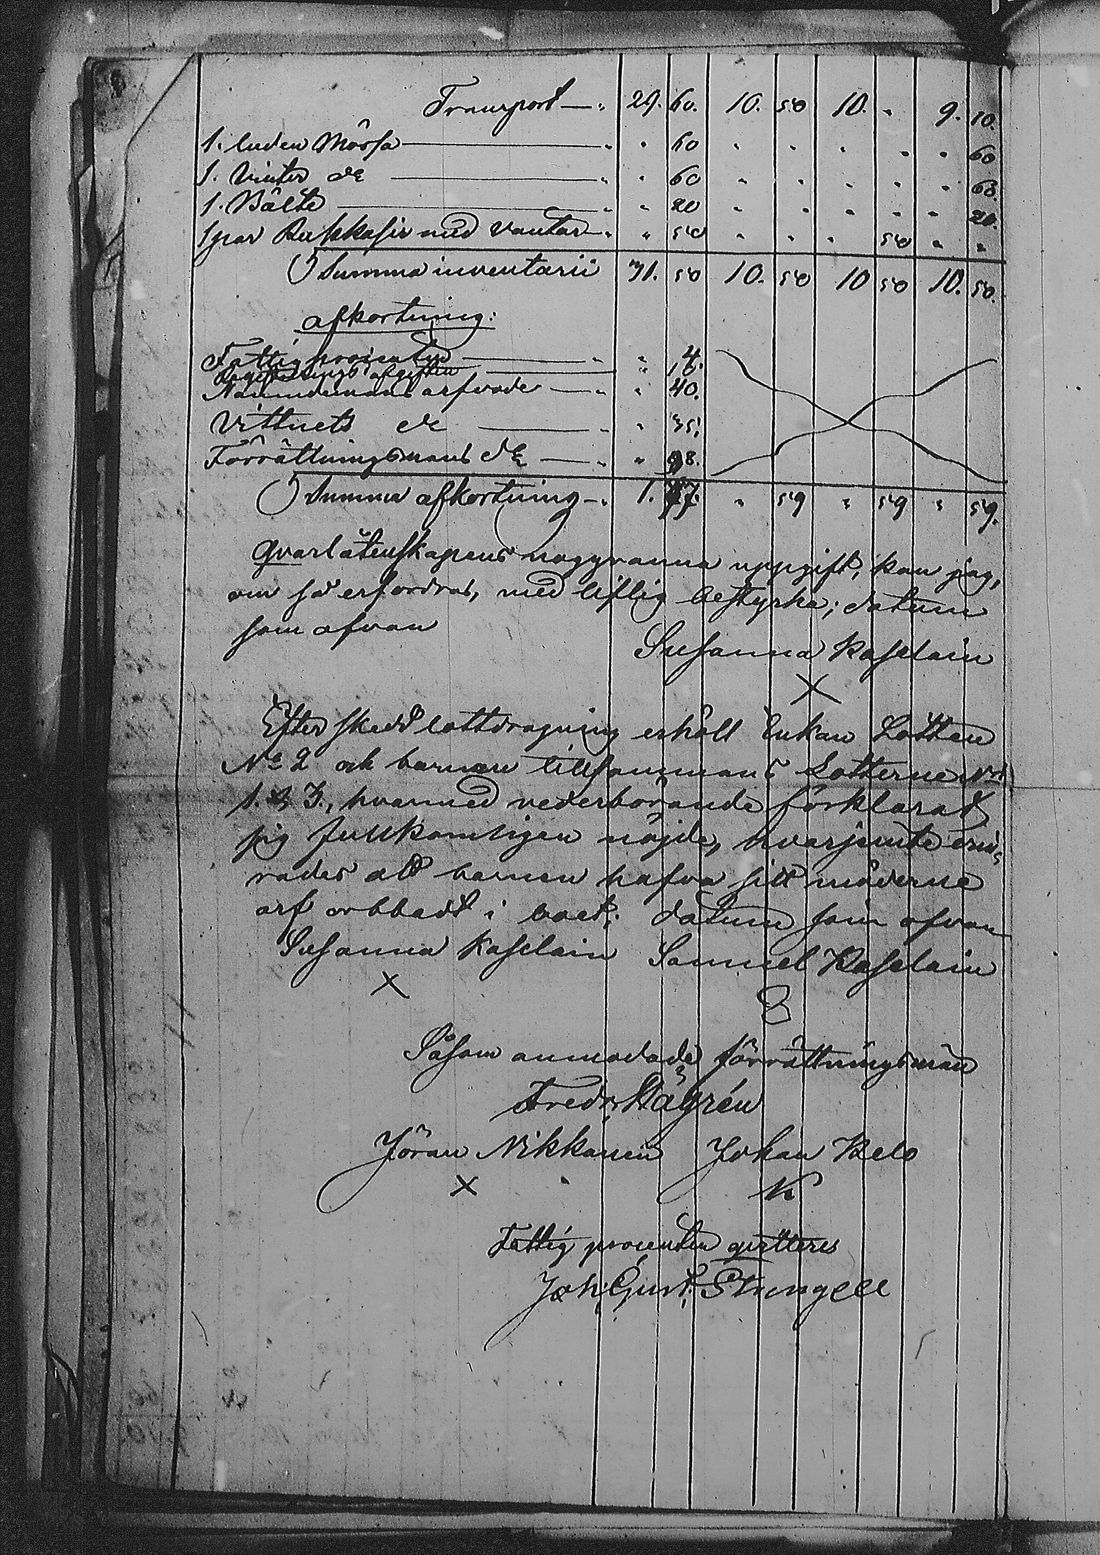 Transport — " 29. 60. 10. 50 10. " 9. 10.
1. luden Mössa — " " 60 " " " " " 60
1. Vinter d:o — " " 60 " " " " " 60.
1. Bälte — " " 20 " " " " " 20.
1 par med Vantar — " " 50 " " " 50 " "
Summa inventarii 31. 50 10. 50 10 50 10. 50.
afkortning:
Fattigprocenten — " " 4.
afgiften — " " 
Nämndemans arfvode — " " 40.
Vittnets d:o — " " 35.
Förrättningsmans d:o — " " 98.
Summa afkortning — " 1. 77. " 59 " 59 " 59.
Qvarlåtenskapens noggranna uppgift, kan jag,
om så erfordras, med liflig bestyrka; datum
som ofvan
Susanna Kaselain
X
Efter skedd lottdragning erhöll Enkan Lotten
No 2 och barnen tillsammans Lotterne No
1. & 3., hvarmed vederbörande förklarat
sig fullkomligen nöjde, hvarjemte erin-
rades att barnen hafva sitt möderne
arf i boet; datum som ofvan
Susanna Kaselain Samuel Kaselain
X
Såsom anmodade förrättningsmän
Fredr. Hägrén
Jöran Nikkanen Johan Belo
X
Fattig procenten qvitteres
Joh: Gust: Strengell